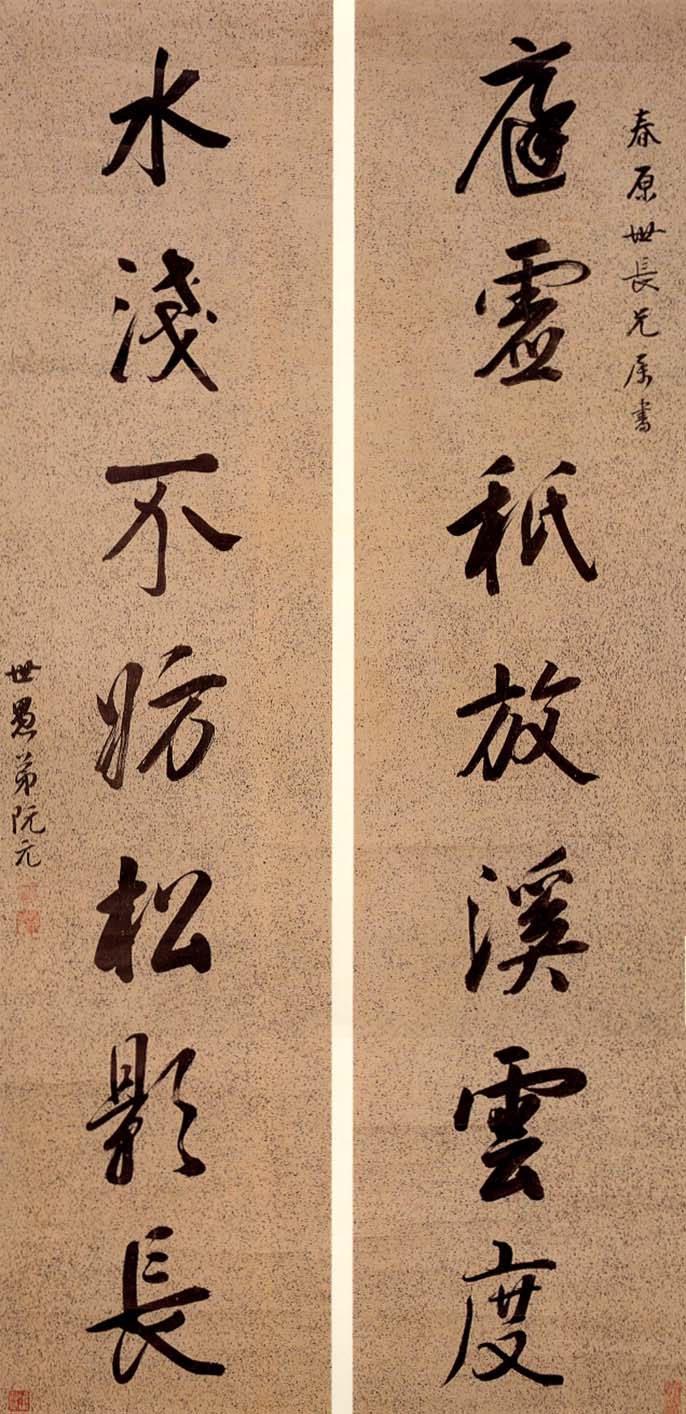 春原世長兄屬書
庭虛秖放溪雲度
水淺不妨松影長
世愚弟阮元